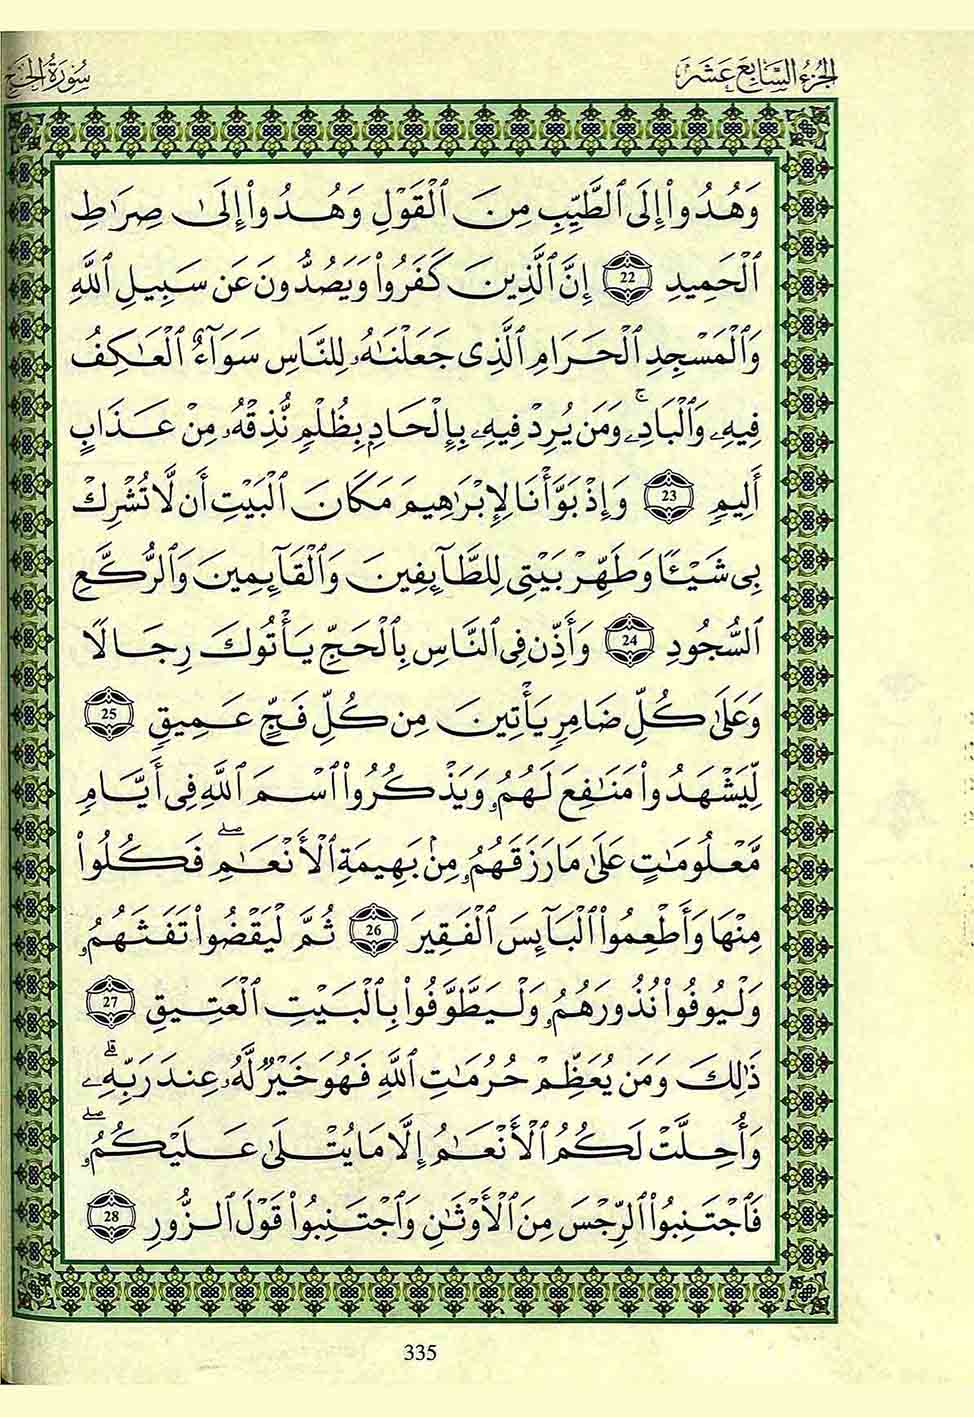 الجزء السابع عشر
سورة الحج
وَهُدُوٓاْ إِلَى اَ۬لطَّيِّبِ مِنَ اَ۬لْقَوْلِ وَهُدُوٓاْ إِلَىٰ صِرَٰطِ
اِ۬لْحَمِيدِ 22 إِنَّ اَ۬لَّذِينَ كَفَرُواْ وَيَصُدُّونَ عَن سَبِيلِ اِ۬للَّهِ
وَالْمَسْجِدِ اِ۬لْحَرَامِ اِ۬لَّذِى جَعَلْنَٰهُۥ لِلنَّاسِ سَوَآءٌ اَ۬لْعَٰكِفُ
فِيهِۦ وَالْبَادِۦۚ وَمَن يُرِدْ فِيهِۦ بِإِلْحَادِۭ بِظُلْمٍ نُّذِقْهُۥ مِنْ عَذَابٍ
أَلِيمٍ 23 وَإِذْ بَوَّأْنَا لِإِبْرَٰهِيمَ مَكَانَ اَ۬لْبَيْتِ أَن لَّا تُشْرِكْ
بِى شَيْـًٔا وَطَهِّرْ بَيْتِى لِلطَّآئِفِينَ وَالْقَآئِمِينَ وَالرُّكَّعِ
اِ۬لسُّجُودِ 24 وَأَذِّن فِى اِ۬لنَّاسِ بِالْحَجِّ يَأْتُوكَ رِجَالًا
وَعَلَىٰ كُلِّ ضَامِرٍ يَأْتِينَ مِن كُلِّ فَجٍّ عَمِيقٍ 25
لِّيَشْهَدُواْ مَنَٰفِعَ لَهُمُۥ وَيَذْكُرُواْ اُ۪سْمَ اَ۬للَّهِ فِى أَيَّامٍ
مَّعْلُومَٰتٍ عَلَىٰ مَا رَزَقَهُمُۥ مِنۢ بَهِيمَةِ اِ۬لْأَنْعَٰمِۖ فَكُلُواْ
مِنْهَا وَأَطْعِمُواْ اُ۬لْبَآئِسَ اَ۬لْفَقِيرَ 26 ثُمَّ لْيَقْضُواْ تَفَثَهُمُۥ
وَلْيُوفُواْ نُذُورَهُمُۥ وَلْيَطَّوَّفُواْ بِالْبَيْتِ اِ۬لْعَتِيقِ 27
ذَٰلِكَ وَمَن يُعَظِّمْ حُرُمَٰتِ اِ۬للَّهِ فَهُوَ خَيْرٌ لَّهُۥ عِندَ رَبِّهِۦۗ
وَأُحِلَّتْ لَكُمُ اُ۬لْأَنْعَٰمُ إِلَّا مَا يُتْلَىٰ عَلَيْكُمُۥۖ
فَاجْتَنِبُواْ اُ۬لرِّجْسَ مِنَ اَ۬لْأَوْثَٰنِ وَاجْتَنِبُواْ قَوْلَ اَ۬لزُّورِ 28
335